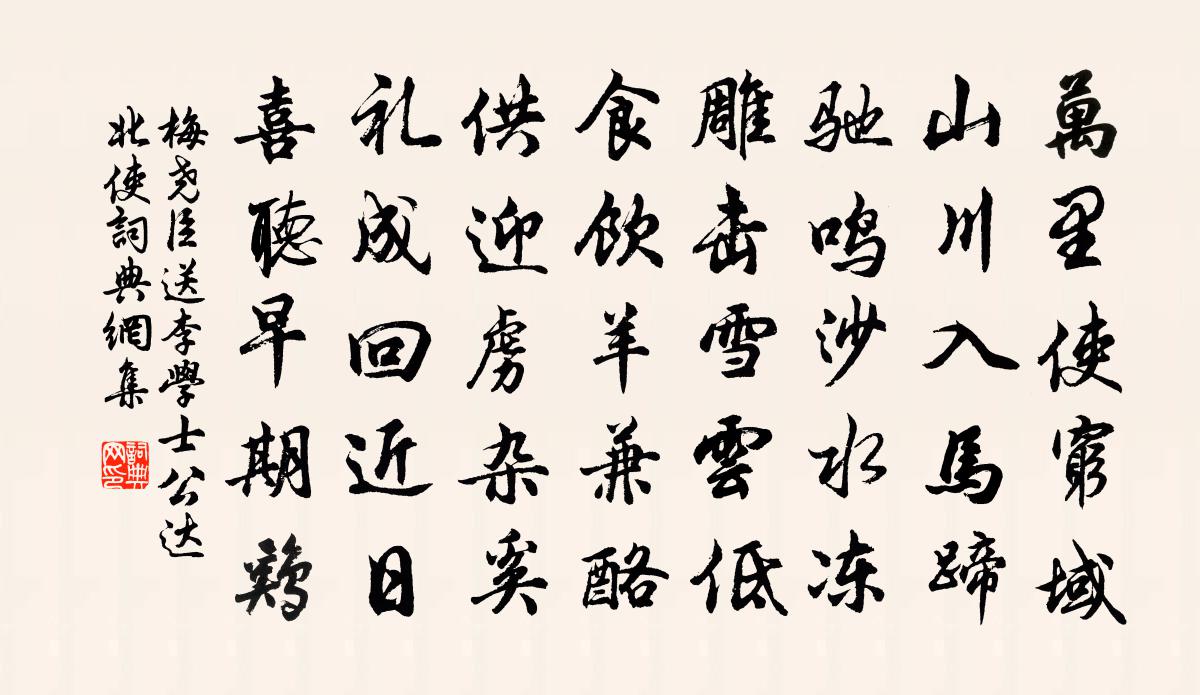 萬里使窮域
山川入馬蹄
驰鸣沙水冻
雕击雪雲低
食飲羊兼酪
供迎虜杂奚
礼成回近日
喜聽早期鷄
梅尧臣送李學士公达
北使詞典網集
詞典
网印